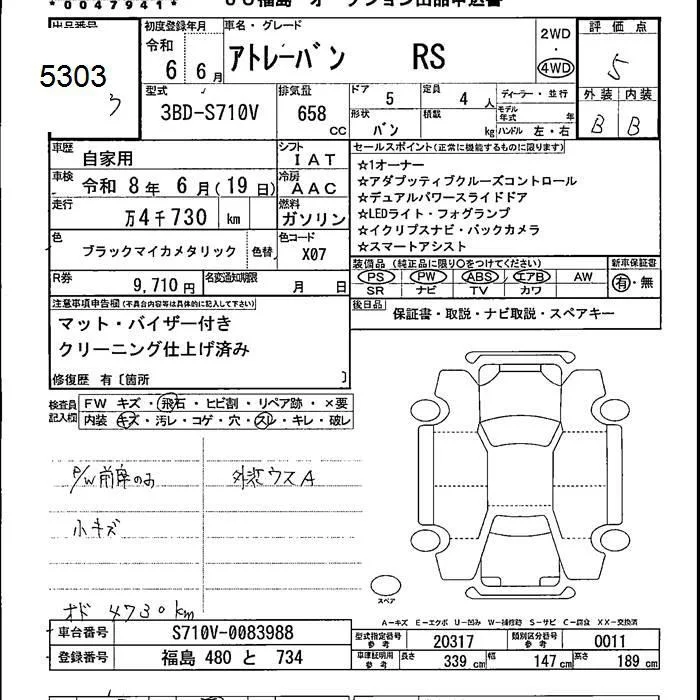 *0047941*
JU福島 オークション出品申込書
出品番号 初度登録年月 車名・グレード 2WD・4WD 評価点
5303 令和 6 6月 アトレーバン RS 5
型式 排気量 ドア 5 定員 4人 ディーラー・並行 外装 内装
3BD-S710V 658cc バン 積載 kg モデル年式 年 B B
ハンドル 左・右
車歴 自家用 シフト IAT セールスポイント(正常に機能するものに限ります)
車検 令和 8年 6月(19日) 冷房 AAC
走行 万4千730 km 燃料 ガソリン
☆1オーナー
☆アダプッティブクルーズコントロール
☆デュアルパワースライドドア
☆LEDライト・フォグランプ
☆イクリプスナビ・バックカメラ
☆スマートアシスト
色 ブラックマイカメタリック 色替 色コード X07
装備品(純正品に限り○をつけてください) 新車保証書
R券 9,710円 名変通知期限 月 日
PS PW ABS エアB AW 有・無
SR ナビ TV カワ
注意事項申告欄(不具合内容等は具体的に記入して下さい)
後日品 保証書・取説・ナビ取説・スペアキー
マット・バイザー付き
クリーニング仕上げ済み
修復歴 有〔箇所 〕
検査員記入欄 FW キズ・飛石・ヒビ割・リペア跡・×要
内装 キズ・汚レ・コゲ・穴・スレ・キレ・破レ
P/W前席のみ 外装ウスA
小キズ
スペア
オド 4730km
A-キズ E-エクボ U-凹み W-補修跡 S-サビ C-腐食 XX-交換済
車台番号 S710V-0083988 型式指定番号 参考 20317 類別区分番号 参考 0011
登録番号 福島 480 と 734 車庫証明用 参考 長さ 339cm 幅 147cm 高さ 189cm